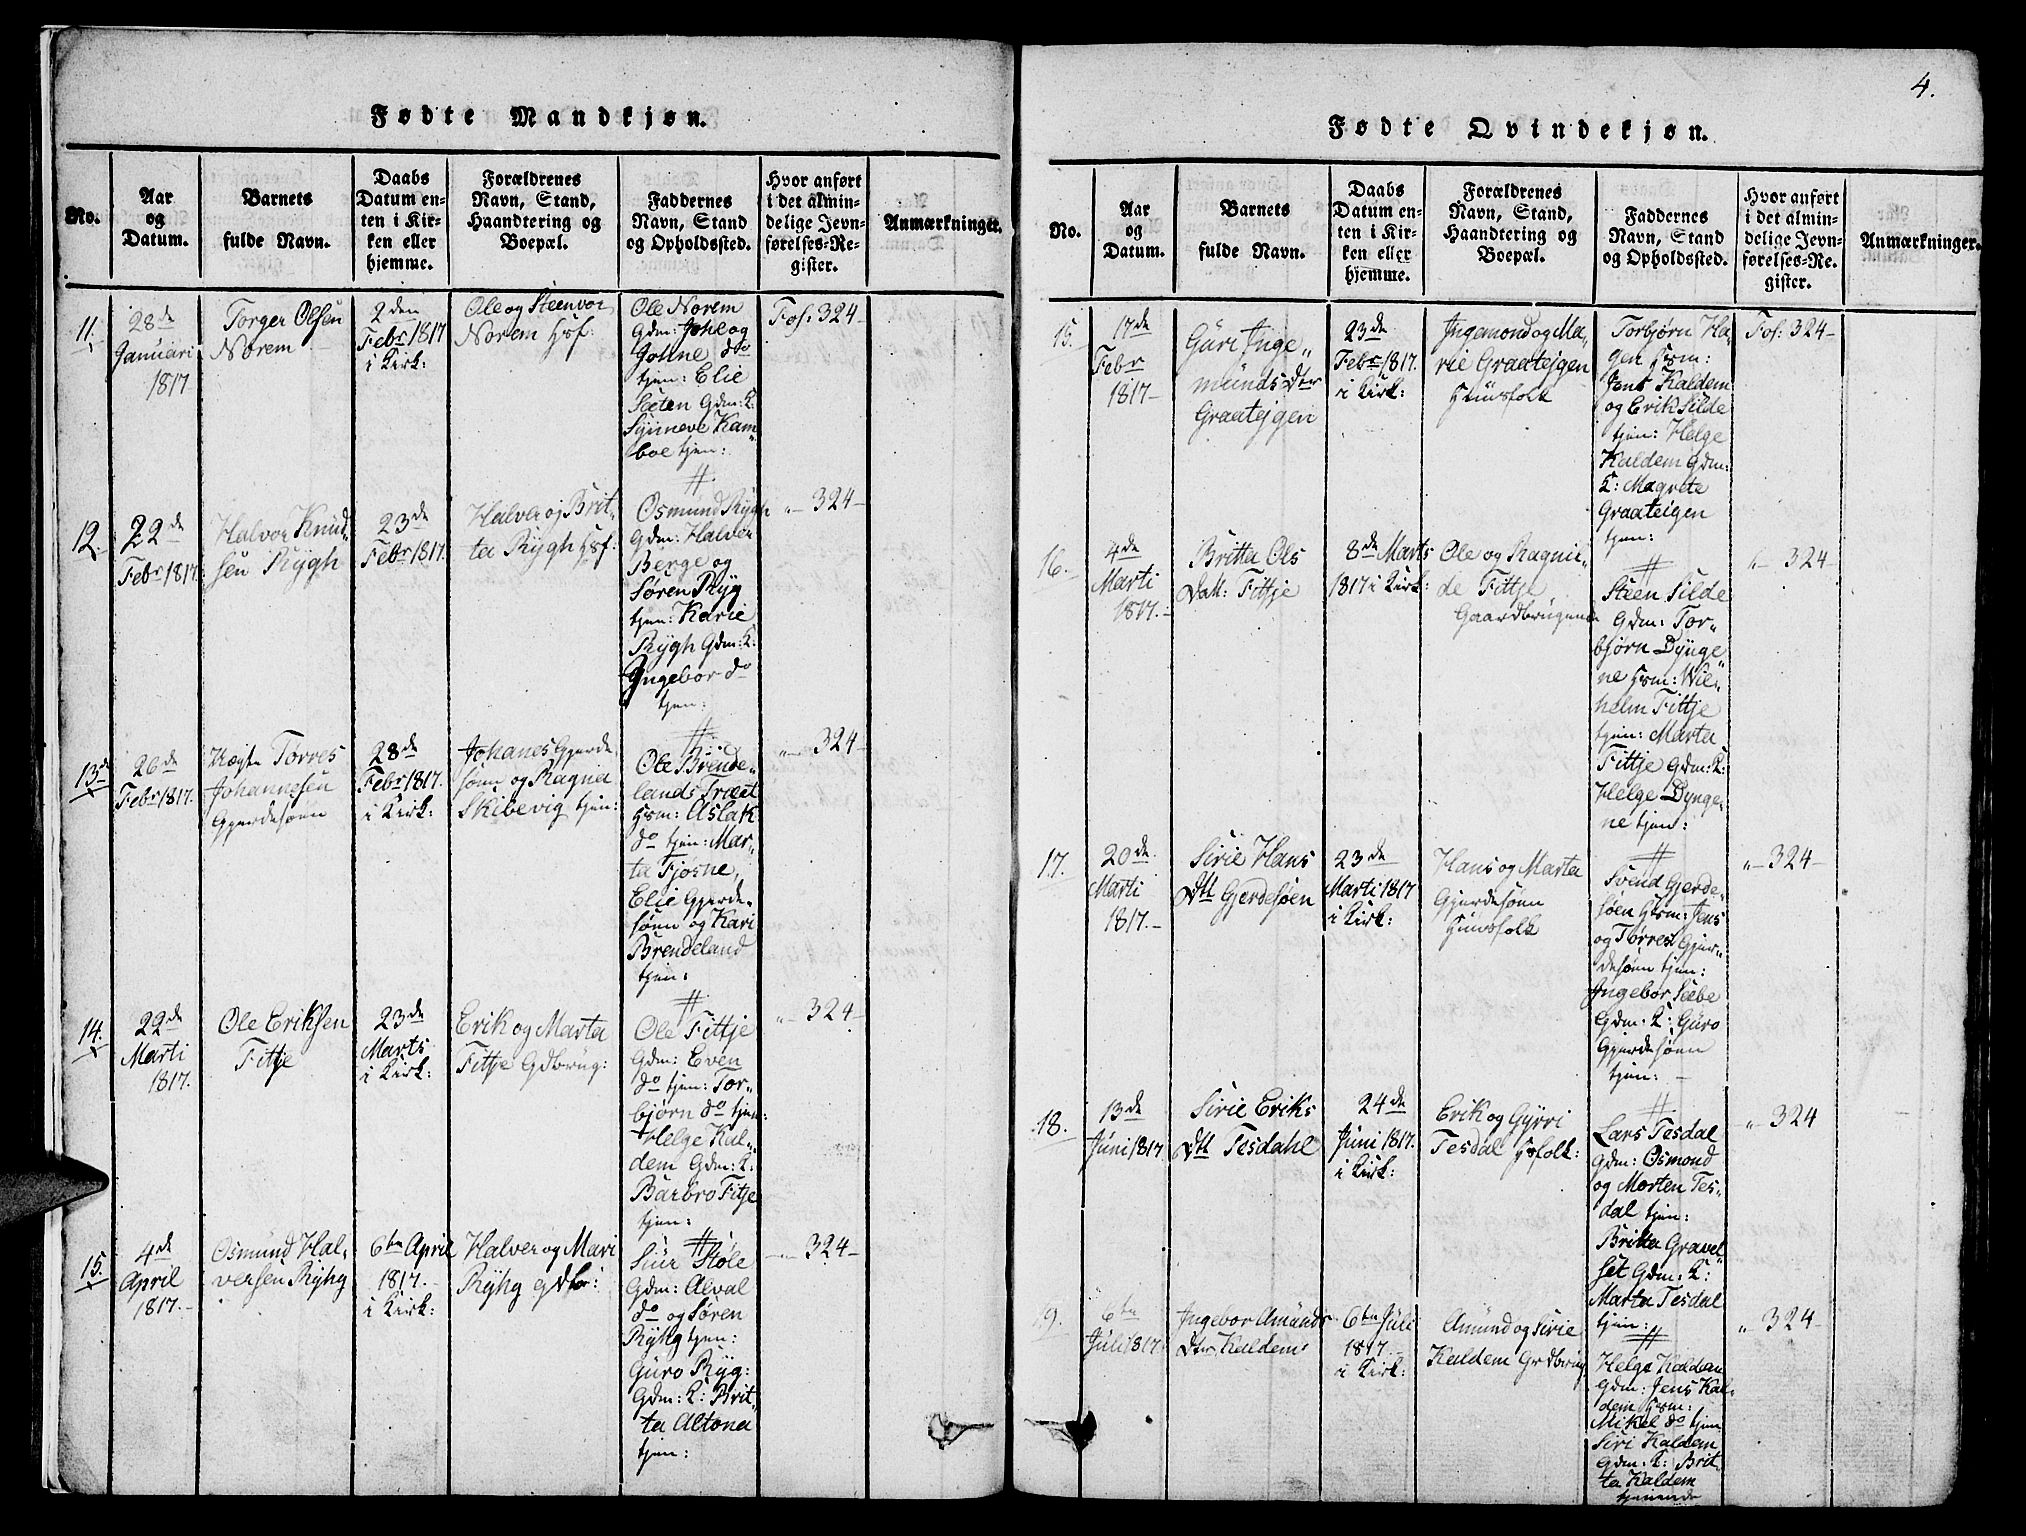 Fødte Mandkjøn.
No.
Aar
og
Datum.
Barnets
fulde Navn.
Daabs
Datum en-
ten i Kir-
ken eller
hjemme.
Forældrenes
Navn, Stand,
Haandtering og
Boepæl.
Faddernes
Navn, Stand
og Opholdssted.
Hvor anført
i det almin-
delige Jevn-
førelses-Re-
gister.
Anmærkninger.
11.
28de
Januari
1817
Torger Olsen
Norem
2den
Febr 1817
i Kirk:
Ole og Steenvor
Norem Hsf:
Ole Norem
Gdm: Johl og
Johne do
tjen: Elie
Sæten Gdm: K:
Synneve Kam„
boe tjen:
Fol: 324
12.
22de
Febr 1817.
Halvor Knud„
sen Rygh
23de
Febr 1817.
Halver og Brit„
ta Rygh Hsf:
Osmund Rygh
Gdm: Halver
Berge og
Søren Ryg
tjen: Karie
Rygh Gdm: K:
Ingebor do
tjen:
„ 324
13de
26de
Febr 1817.
Torres
Johannesen
Gjerdesøen
28de
Febr 1817.
i Kirk:
Johanes Gjerde
søen og Ragna
Skibevig tjen:
Ole Brende„
lands Træet
Hsm: Aslak
do tjen: Mar„
ta Tjøsne,
Elie Gjerde„
søen og Kari
Brendeland
tjen:
„ 324
14.
22de
Marti
1817.
Ole Eriksen
Fittje
23de
Marts
i Kirk:
Erik og Marta
Fittje Gdbrug:
Ole Fittje
Gdm: Even
do tjen: Tor„
bjørn do tjen:
Helge Kal„
dem Gdm: K:
Barbro Fitje
tjen:
„ 324
15.
4de
April
1817.
Osmund Hal„
versen Ryhg
6te April
1817.
i Kirk:
Halver og Mari
Ryhg
Siur Støle
Gdm: Alval
do og Søren
Ryhg tjen:
Guro Ryg:
Gdm: K: Brit„
ta Altona
tjen:
„ 324
4.
Fødte Qvindekjøn.
No.
Aar
og
Datum.
Barnets
fulde Navn.
Daabs
Datum en-
ten i Kir-
ken eller
hjemme.
Forældrenes
Navn, Stand,
Haandtering og
Boepæl.
Faddernes
Navn, Stand
og Opholdssted.
Hvor anført
i det almin-
delige Jevn-
førelses-Re-
gister.
Anmærkninger.
15.
17de
Febr
1817
Guri Inge„
munds Dtr
Graateigen
23de
Febr 1817.
i Kirk:
Ingemond og Ma„
rie Graateigen
Huusfolk
Torbjørn Ha„
gen Hsm:
Jens Kaldem
og Erik Silde
tjen: Helge
Kaldem Gdm:
K: Magrete
Graateigen
tjen:
Fol: 324
16.
4de
Marti
1817.
Britta Ols
Datt: Fittje
8de Marts
1817 i Kirk:
Ole og Ragnil„
de Fittje
Gaardbrugende
Steen Silde
Gdm: Tor„
bjørn Dynge
ne Hsm: Wil„
helm Fittje
tjen: Marta
Fittje Gdm: K:
Helge Dynge„
ne tjen:
„ 324
17.
20de
Marti
1817.
Sirie Hans
Dtt Gjerdesøen
23de
Marti 1817
i Kirk:
Hans og Marta
Gjerdesøen
Huusfolk
Svend Gjerde„
søen Hsm: Jens
og Torres Gjer„
desøen tjen:
Ingebor Sæbe
Gdm: K: Guro
Gjerdesøen
tjen:
„ 324
18.
13de
Juni 1817
Sirie Eriks
Dtt Tesdahl
24de
Juni 1817.
i Kirk:
Erik og Gyrri
Tesdal Hsfolk:
Lars Tesdal
Gdm: Osmond
og Morten Tes„
dal tjen:
Britta Gravel
set Gdm: K:
Marta Tesdal
tjen:
„ 324
19.
6te
Juli 1817
Ingebor Amunds
Dtr Kaldem
6te Juli
1817.
i Kirk:
Amund og Sirie
Kaldem Grdbrug
Helge Kaldem
Gdm: Jens Kal„
dem Hsm:
Mikel do tjen
Siri Kaldem
Gdm: K: Brit„
ta Kaldem
tjenende
„ 324